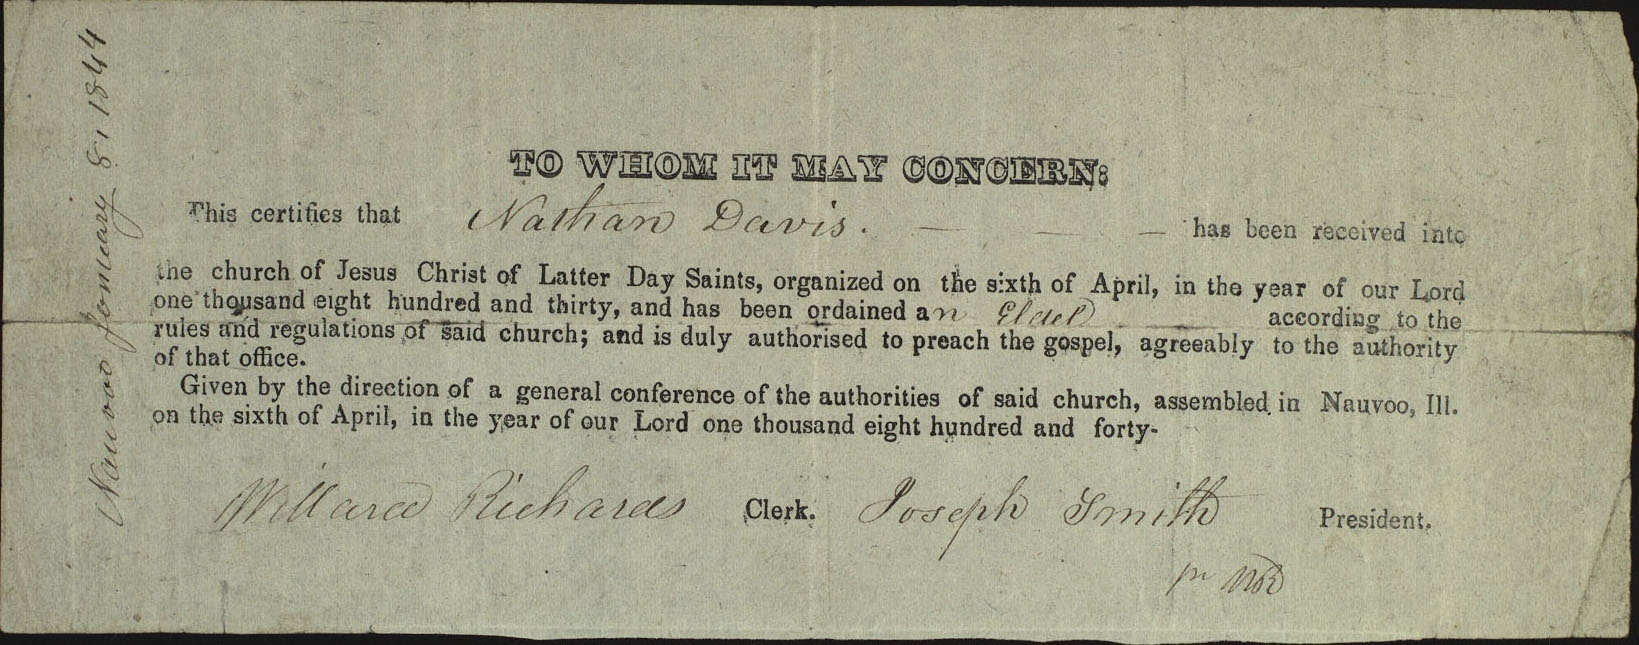 Nauvoo January 8, 1844
TO WHOM IT MAY CONCERN:
This certifies that Nathan Davis. — — — has been received into
the church of Jesus Christ of Latter Day Saints, organized on the sixth of April, in the year of our Lord
one thousand eight hundred and thirty, and has been ordained an Elder according to the
rules and regulations of said church; and is duly authorised to preach the gospel, agreeably to the authority
of that office.
Given by the direction of a general conference of the authorities of said church, assembled in Nauvoo, Ill.
on the sixth of April, in the year of our Lord one thousand eight hundred and forty-
Willard Richards Clerk. Joseph Smith President.
pr WR